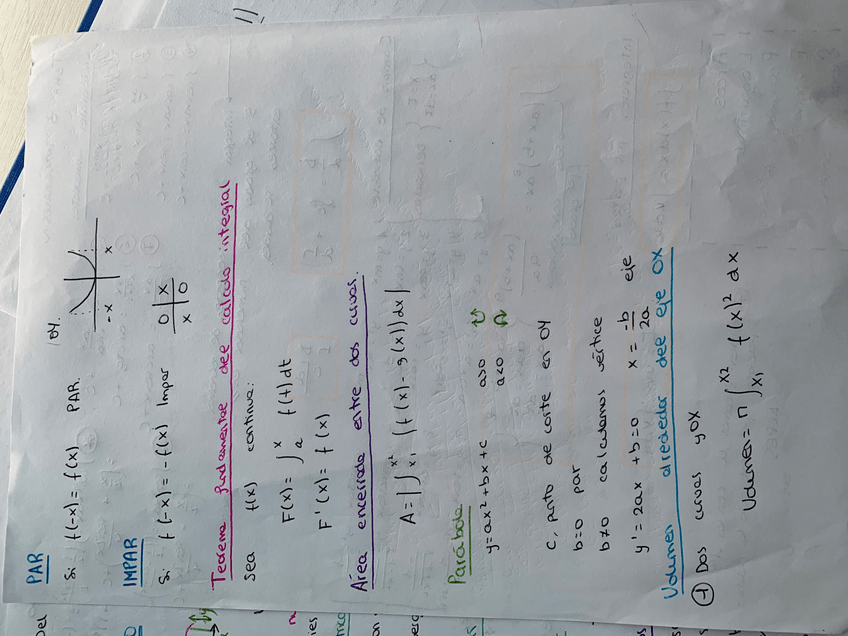 PAR
Si f(-x) = f(x) PAR.
-x x
IMPAR
Si f(-x) = -f(x) Impar
O X
X O
Teorema fundamental del calculo integral
Sea f(x) continua:
F(x) = ∫ₐˣ f(t) dt
F'(x) = f(x)
Área encerrada entre dos curvas.
A = |∫ₓ₁ˣ² (f(x) - g(x)) dx|
Parábola
y = ax² + bx + c a>0 ↺
a<0
c, punto de corte en OY
b=0 par
b≠0 calculamos vértice
y' = 2ax + b = 0 x = -b/2a eje
Volumen alrededor del eje OX
1 Dos curvas y OX
Volumen = π ∫ₓ₁ˣ² f(x)² dx